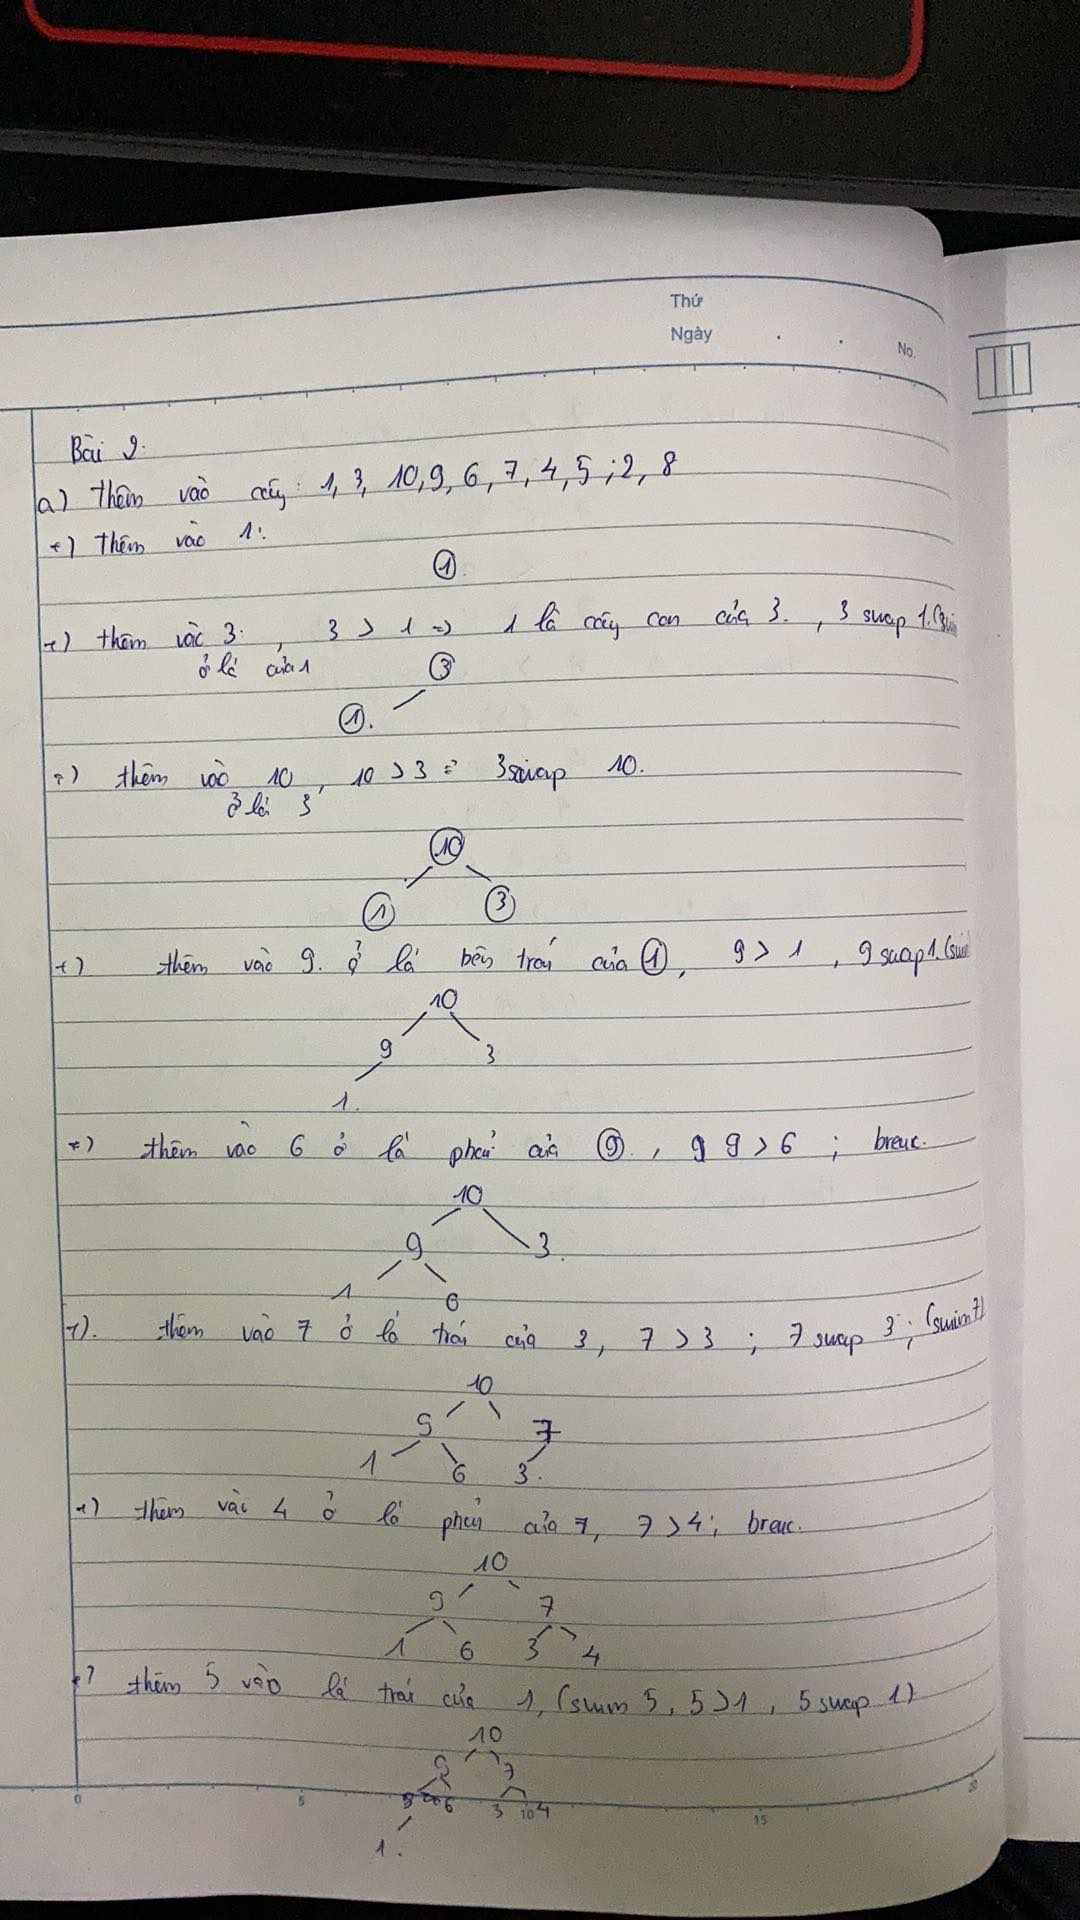 Thứ
Ngày
No.
Bài 2.
a) thêm vào cây: 1, 3, 10, 9, 6, 7, 4, 5; 2, 8
+) thêm vào 1:
1
+) thêm vào 3: , 3 > 1 => 1 là cây con của 3. , 3 swap 1.
ở lá của 1
3
1.
+) thêm vào 10, 10 > 3 => 3 swap 10.
ở lá 3
10
1 3
+) thêm vào 9. ở lá bên trái của 1, 9 > 1, 9 swap 1.
10
9 3
1.
+) thêm vào 6 ở lá phải của 9. , 9 9 > 6 ; break.
10
9 3.
1 6
+). thêm vào 7 ở lá trái của 3, 7 > 3 ; 7 swap 3 ; (swim 7)
10
9 7
1 6 3.
+) thêm vào 4 ở lá phải của 7, 7 > 4; break.
10
9 7
1 6 3 4
+) thêm 5 vào lá trái của 1, (swim 5, 5 > 1, 5 swap 1)
10
9 7
5 6 3 4
1.
0 5 10 15 20